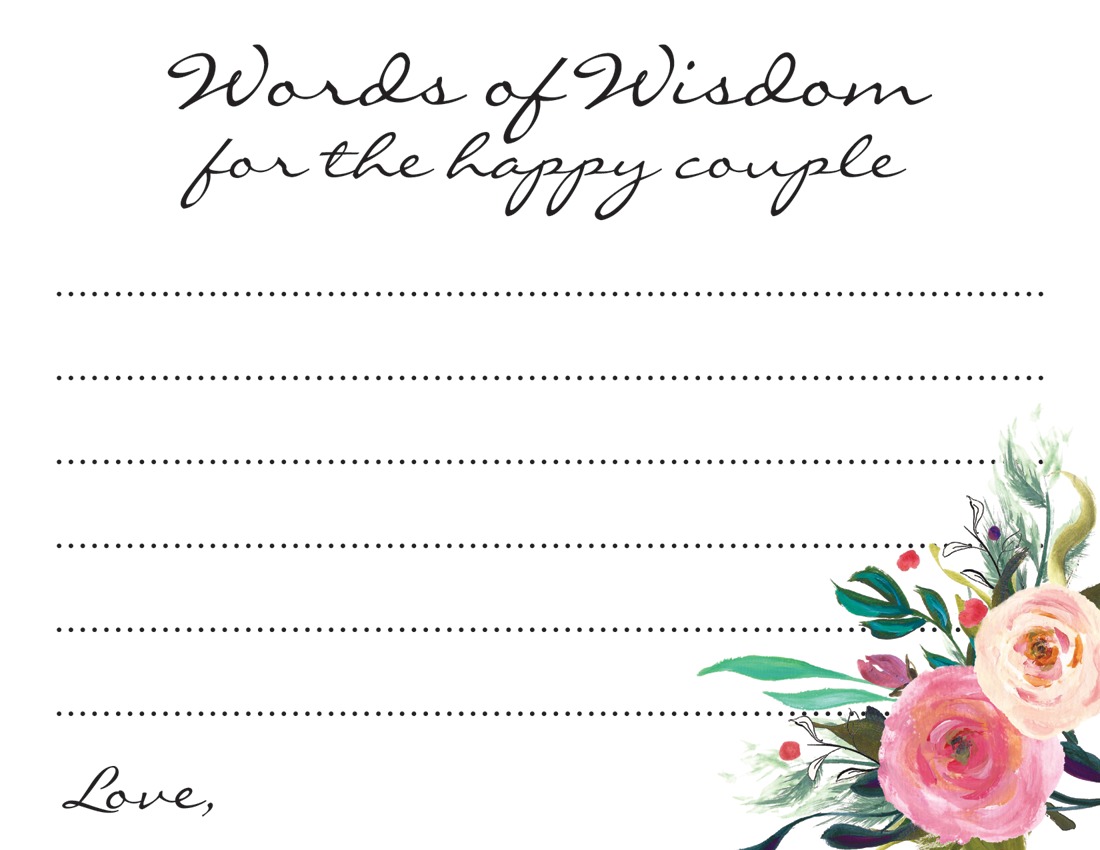 Words of Wisdom
for the happy couple
Love,